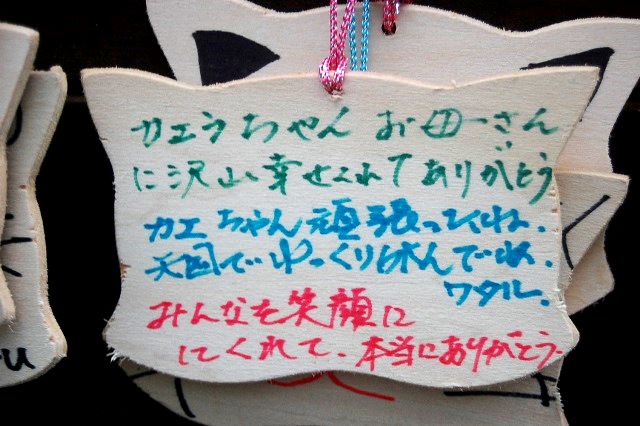 カエラちゃん お母さん
に沢山幸せくれてありがとう
カエちゃん頑張ってくね.
天国でゆっくり休んでね.
ワタル.
みんなを笑顔に
にてくれて.本当にありがとう.